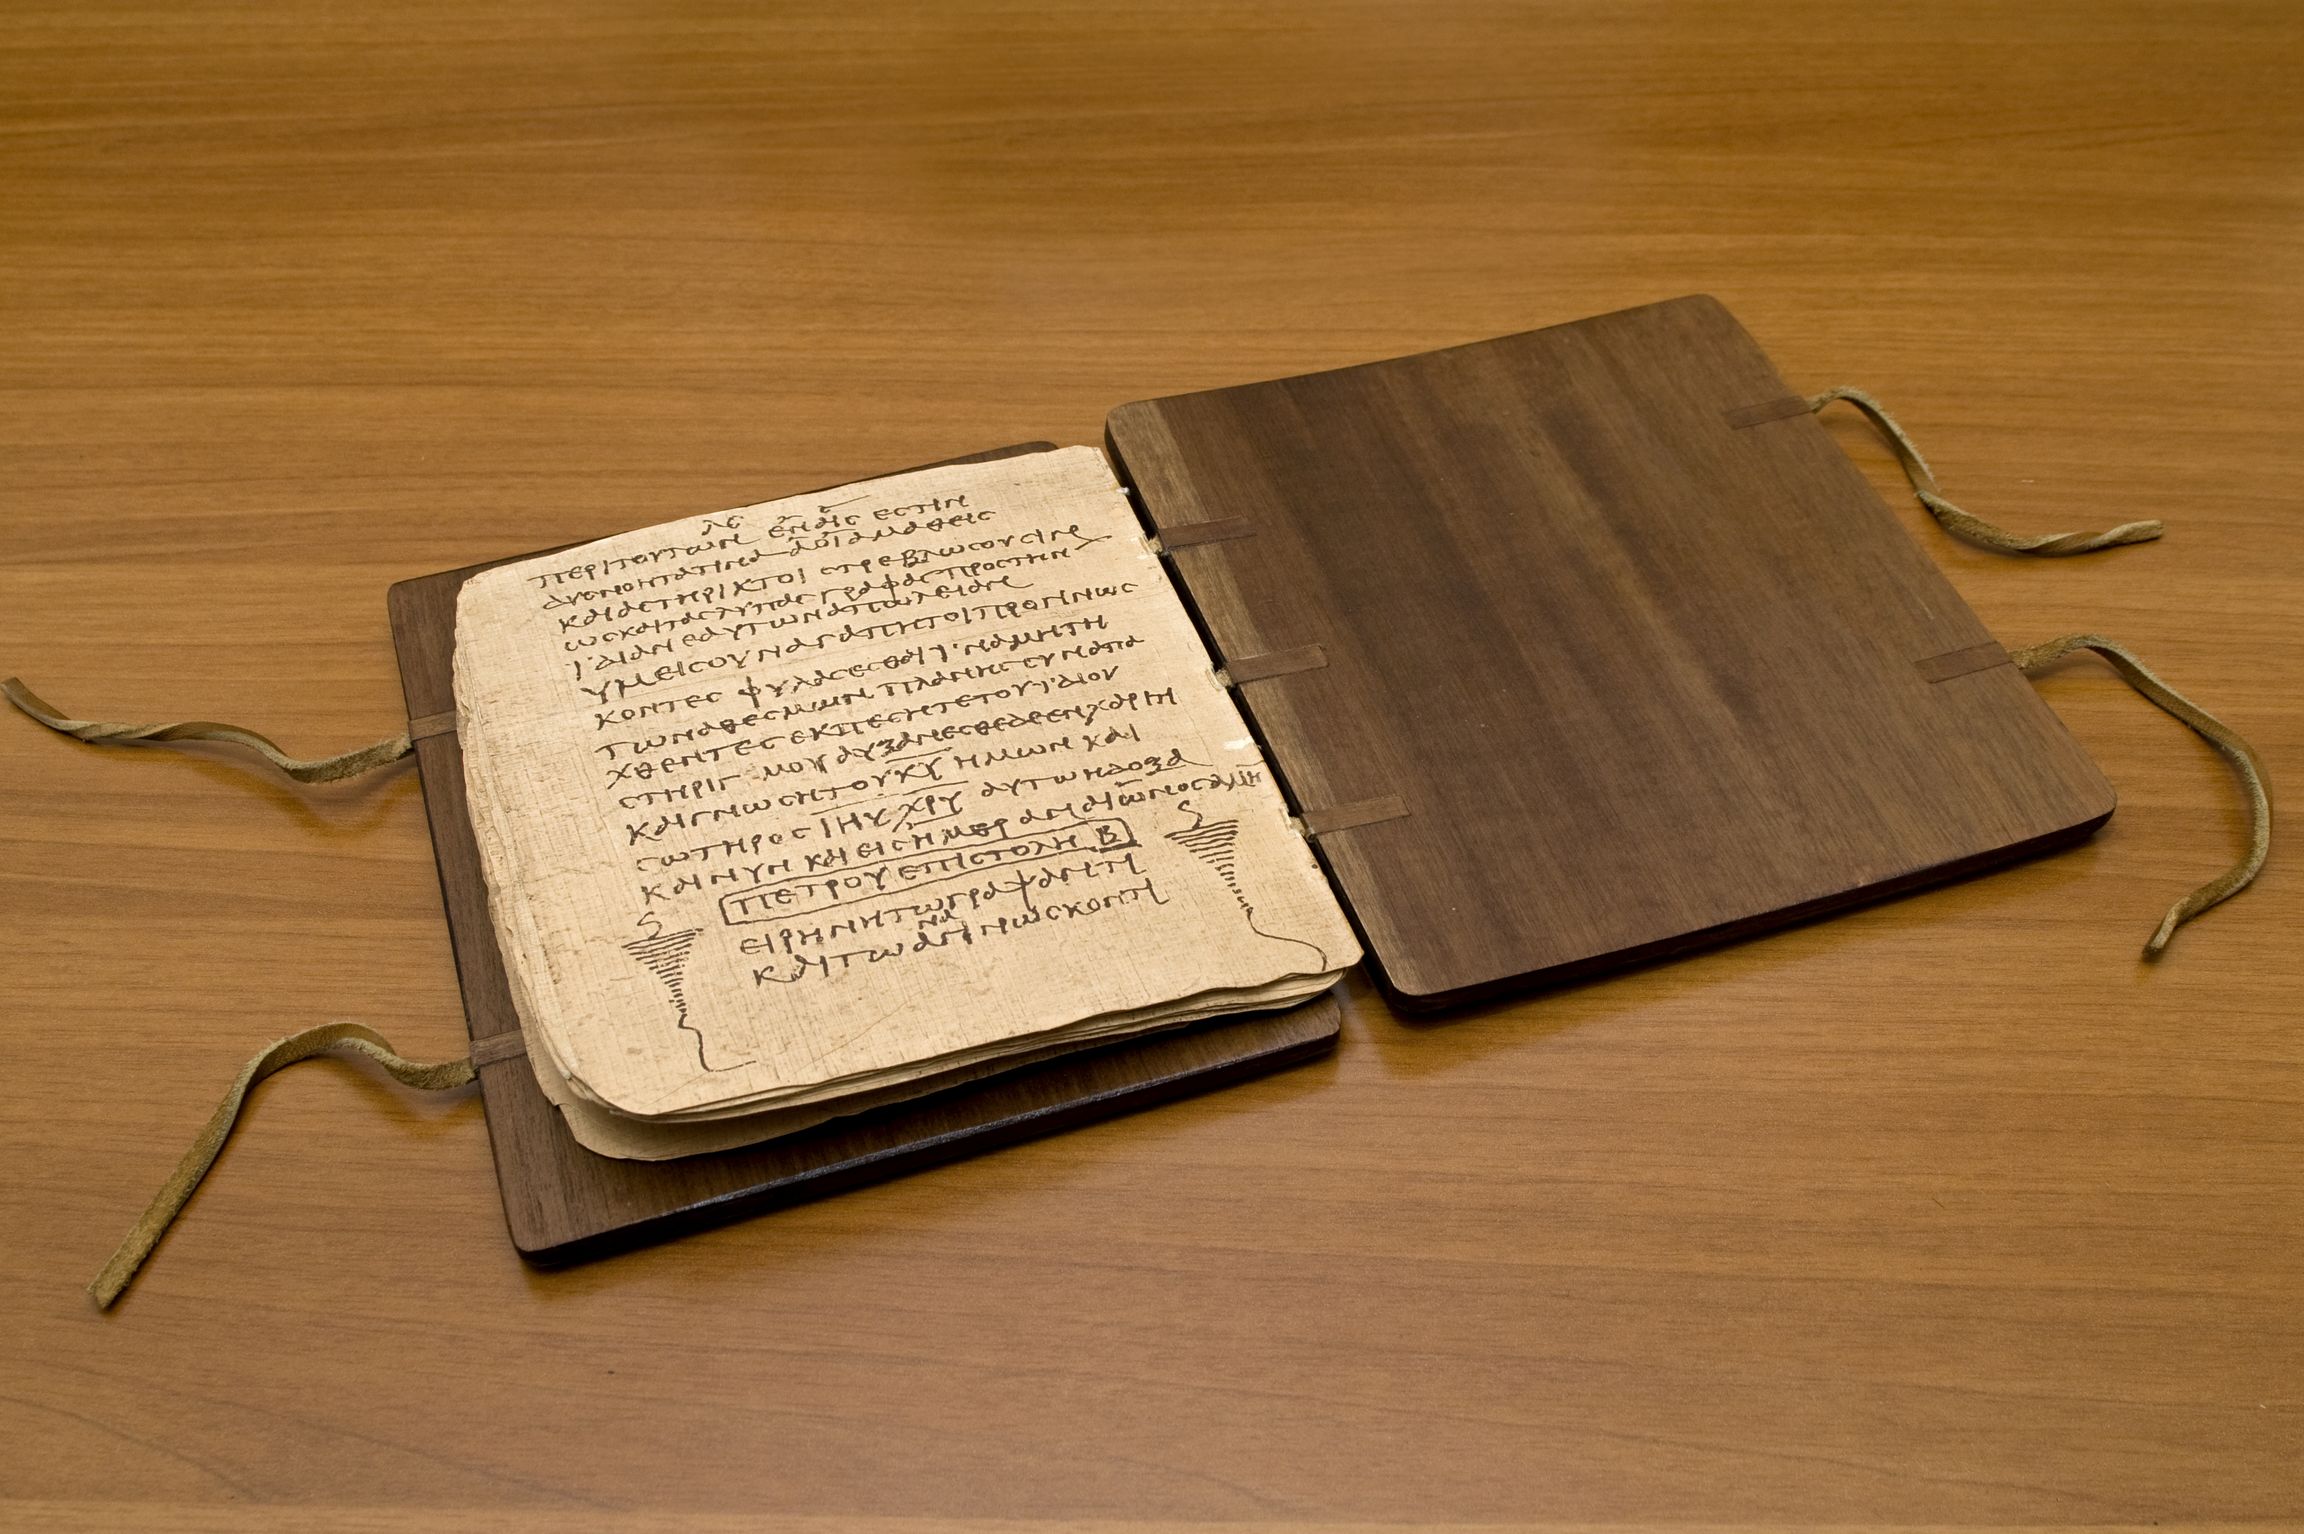 λς
περιτουτων εν αις εστιν
δυσνοητατινα α οι αμαθεις
καιαστηρικτοι στρεβλωσουσιν
ωσκαιταςλυπας γραφαςπροστην
ϊδιανεαυτωναπωλειαν
υμεισουναγαπητοιπρογινως
κοντες φυλασεσθαι ϊναμητη
τωναθεσμων πλανησσυναπα
χθεντεσεκπεσητετουϊδιου
στηριγ μου αυξανεσθεδεενχαριτι
καιγνωσητουκυ ημων και
σωτηροςιηυ χρυ αυτωηδοξα
καινυν καιεισημεραναιωνοσαμη
πετρουεπιστολη β
ειρηνητωγραψαντι
και τωαναγινωσκοντι